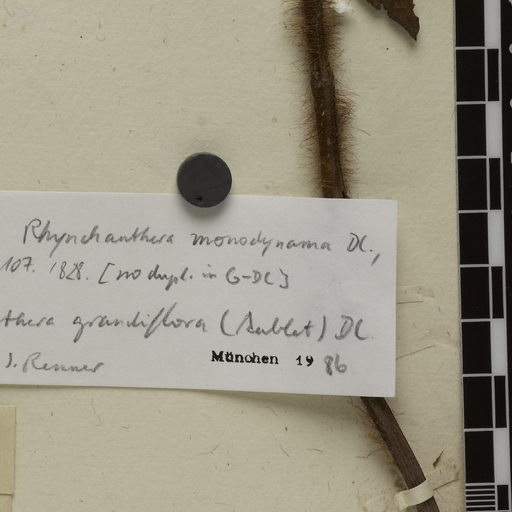 Rhynchanthera monodynama DC.,
107. 1828. [no dupl. in G-DC]
thera grandiflora (Aublet) DC.
S. Renner München 1986